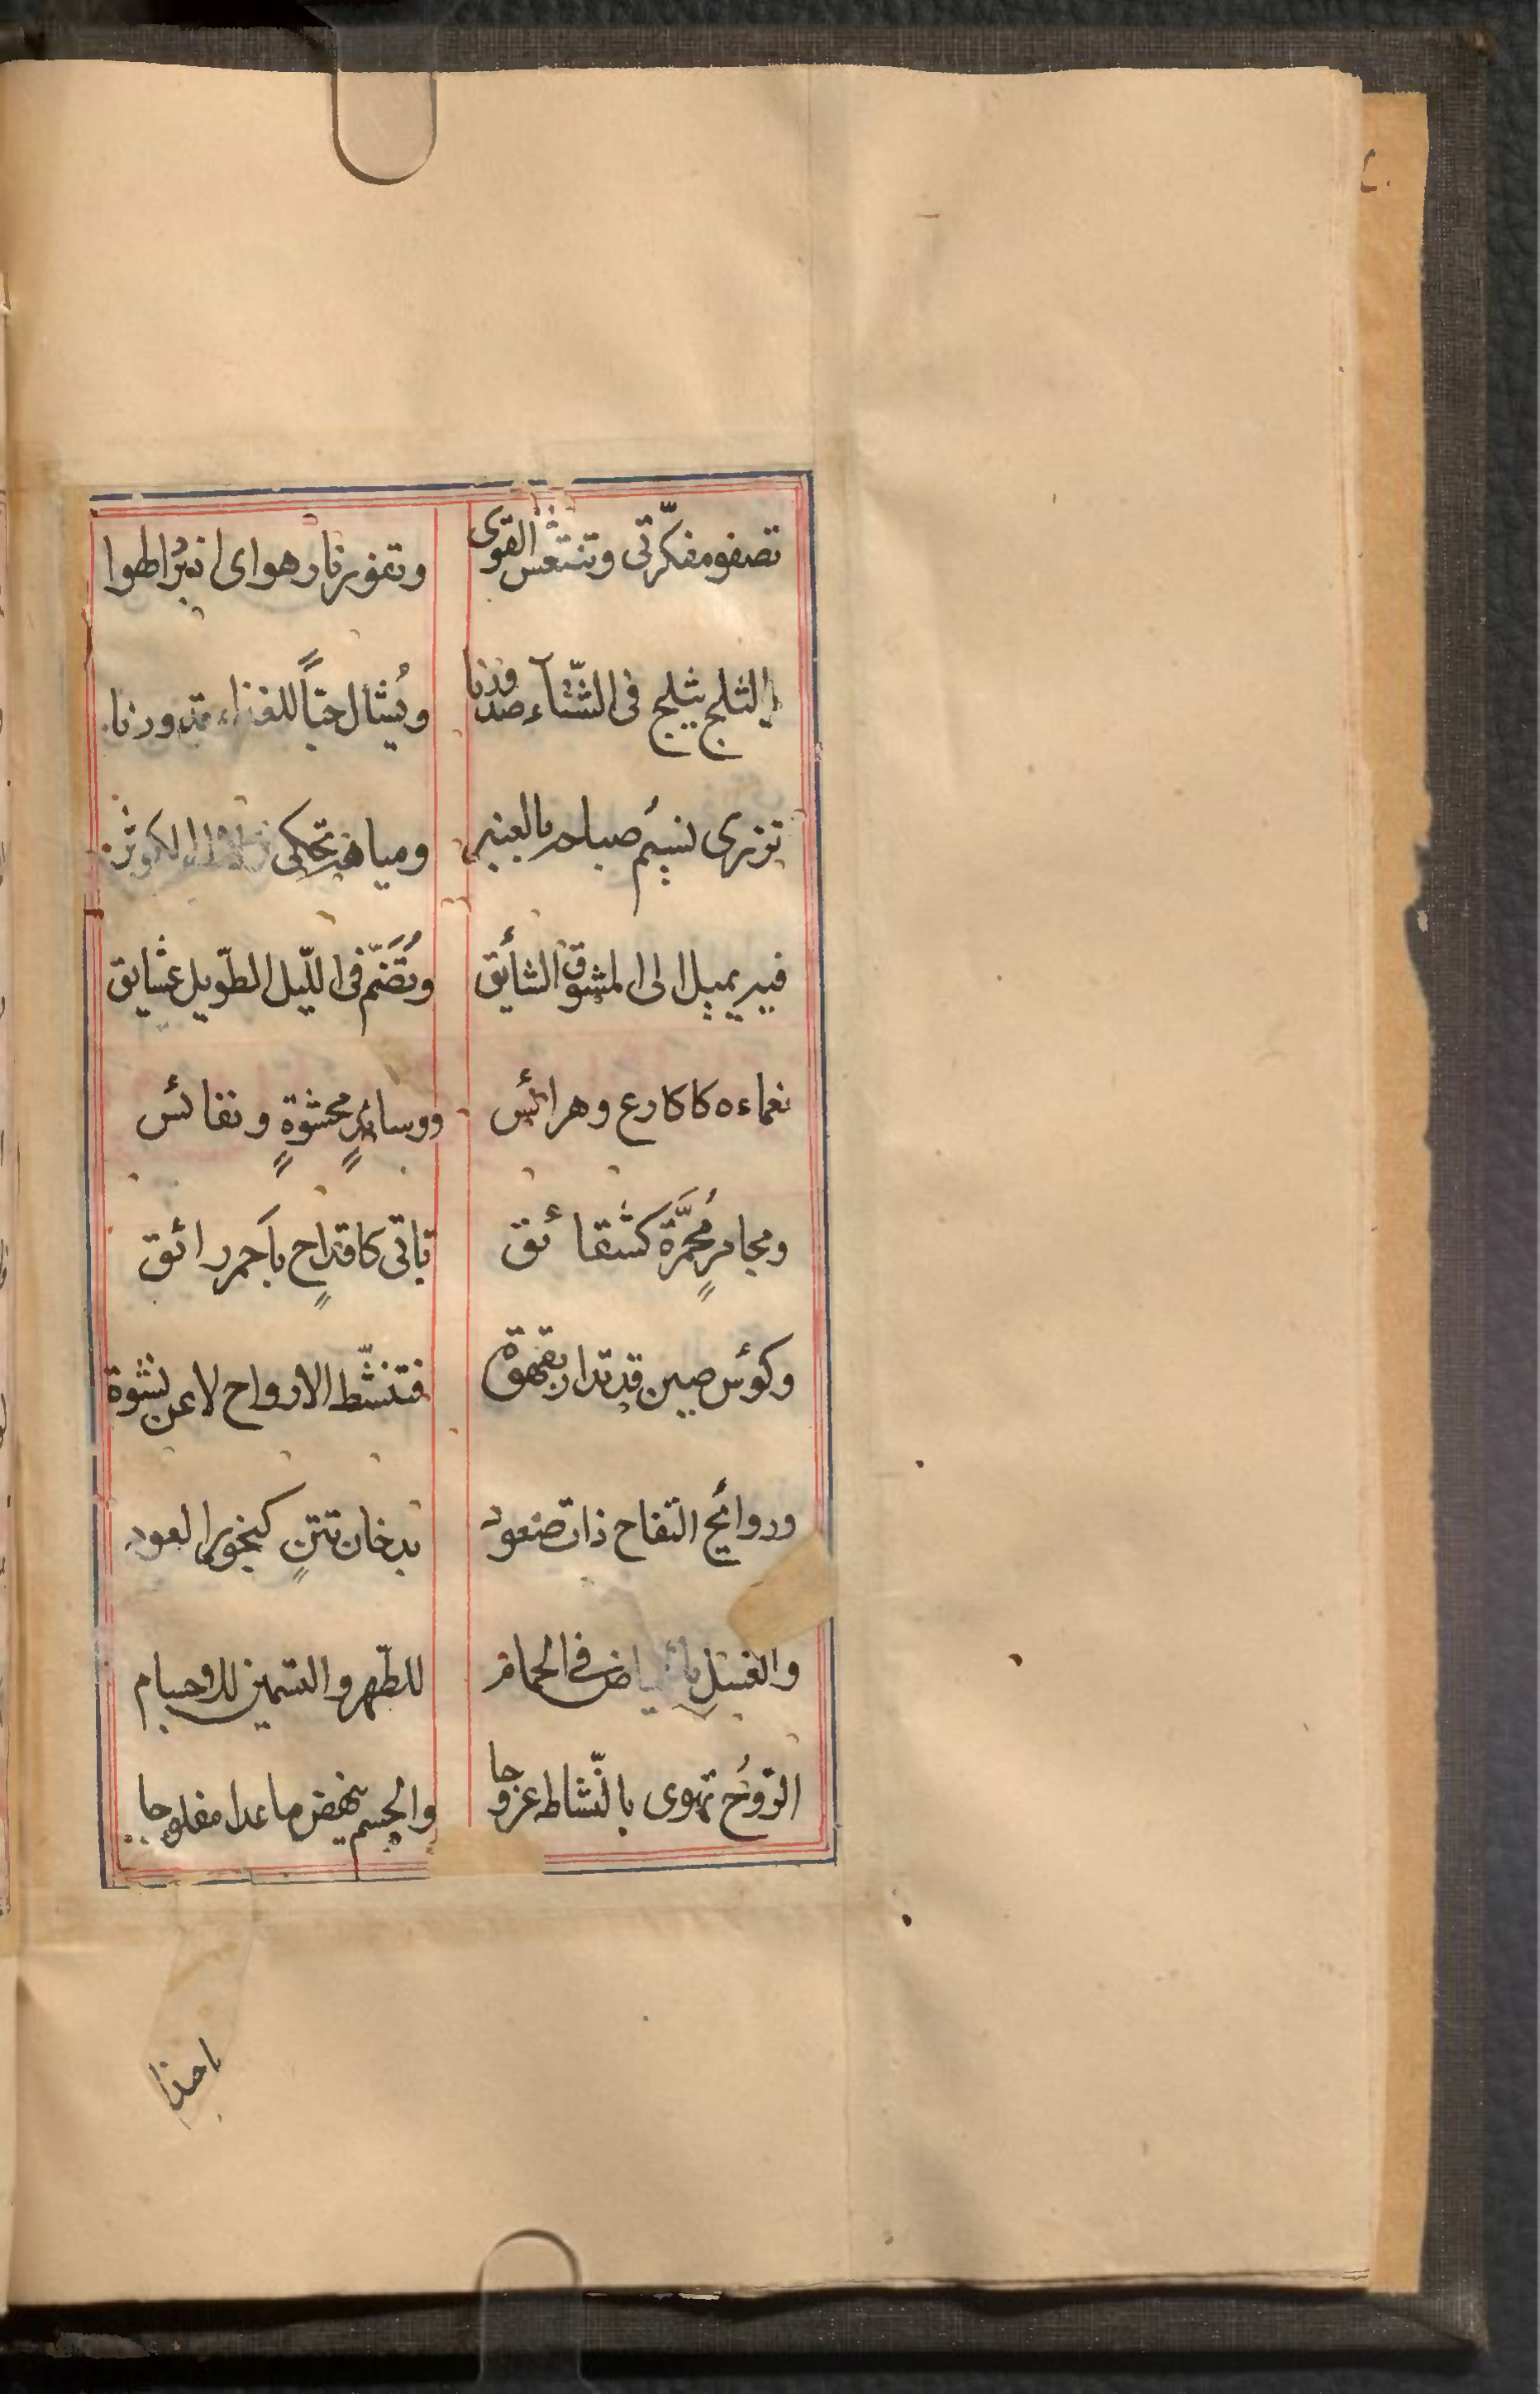 تصفو مفكّرتى وتنتعش القوى وتفور نار هواى
الثلج يثلج فى الشّتآء صدورنا ويُثال حبّاً للغذاء
تزرى نسيم صباحه بالعنبر ومياهه تحكى الكوثر
فيه يميل الى المشوق الشأيق وتُضَمّ فى اللّيل الطّويل عشايق
نعماءه كاكارع وهرائس ووسائدٍ محشوةٍ ونفائس
ومجامرٍ مُحمَّرة كشقائق تاتى كاقداحٍ باَحمر رائق
وكوئس صين قد تدار بقهوة فتنشّط الارواح لا عن نشوة
وروائح التفاح ذات صعود بدخان تتنٍ كبخور العود
والغسل فى الحمام للطّهر والتسمين للاجسام
الرّوحُ تهوى بالنّشاط عروجا والجسم ينهض ما عدا مفلوجا